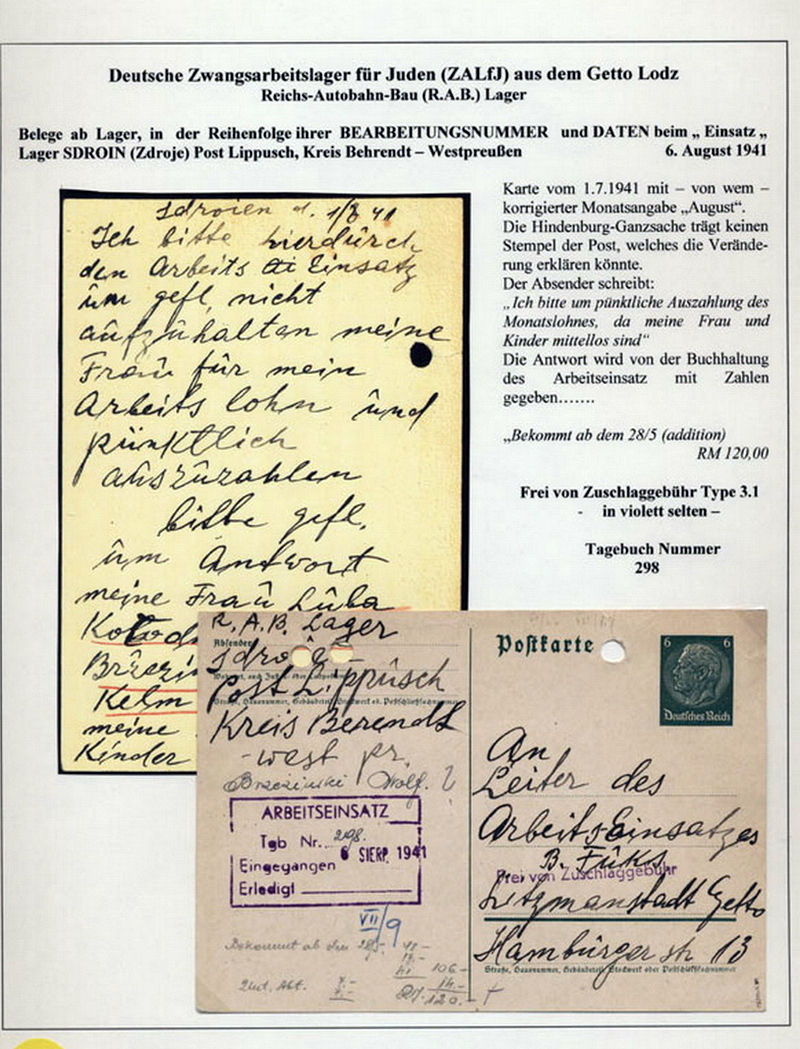 Deutsche Zwangsarbeitslager für Juden (ZALfJ) aus dem Getto Lodz
Reichs-Autobahn-Bau (R.A.B.) Lager
Belege ab Lager, in der Reihenfolge ihrer BEARBEITUNGSNUMMER und DATEN beim „ Einsatz „
Lager SDROIN (Zdroje) Post Lippusch, Kreis Behrendt – Westpreußen 6. August 1941
Karte vom 1.7.1941 mit – von wem –
korrigierter Monatsangabe „August“.
Die Hindenburg-Ganzsache trägt keinen
Stempel der Post, welches die Verände-
rung erklären könnte.
Der Absender schreibt:
„Ich bitte um pünktliche Auszahlung des
Monatslohnes, da meine Frau und
Kinder mittellos sind“
Die Antwort wird von der Buchhaltung
des Arbeitseinsatz mit Zahlen
gegeben…….
„Bekommt ab dem 28/5 (addition)
RM 120,00
Frei von Zuschlaggebühr Type 3.1
- in violett selten –
Tagebuch Nummer
298
Sdroien d. 1/8 41
Ich bitte hierdürch
den Arbeits Einsatz
üm gefl. nicht
aufzühalten meine
Fraü für mein
Arbeits lohn ünd
pünktlich
aüszüzahlen
bitte gefl.
üm Antwort
meine Fraü Lüba
Brzezin
Kelm
meine
Kinder
R.A.B. Lager
Absender
Post Lippüsch
Kreis Berendt
-west pr.
Brzezinski Wolf.
ARBEITSEINSATZ
Tgb Nr. 298.
Eingegangen 6 SIERP. 1941
Erledigt
VII/9
Bekommt ab dem 28/5-
106.-
14.-
120.-
Postkarte
6 6
Deutsches Reich
An
Leiter des
Arbeitseinsatzes
B. Füks
Frei von Zuschlaggebühr
Litzmanstadt Getto
Hambürger str 13
Straße, Hausnummer, Gebäudeteil, Stockwerk oder Postschließfachnummer